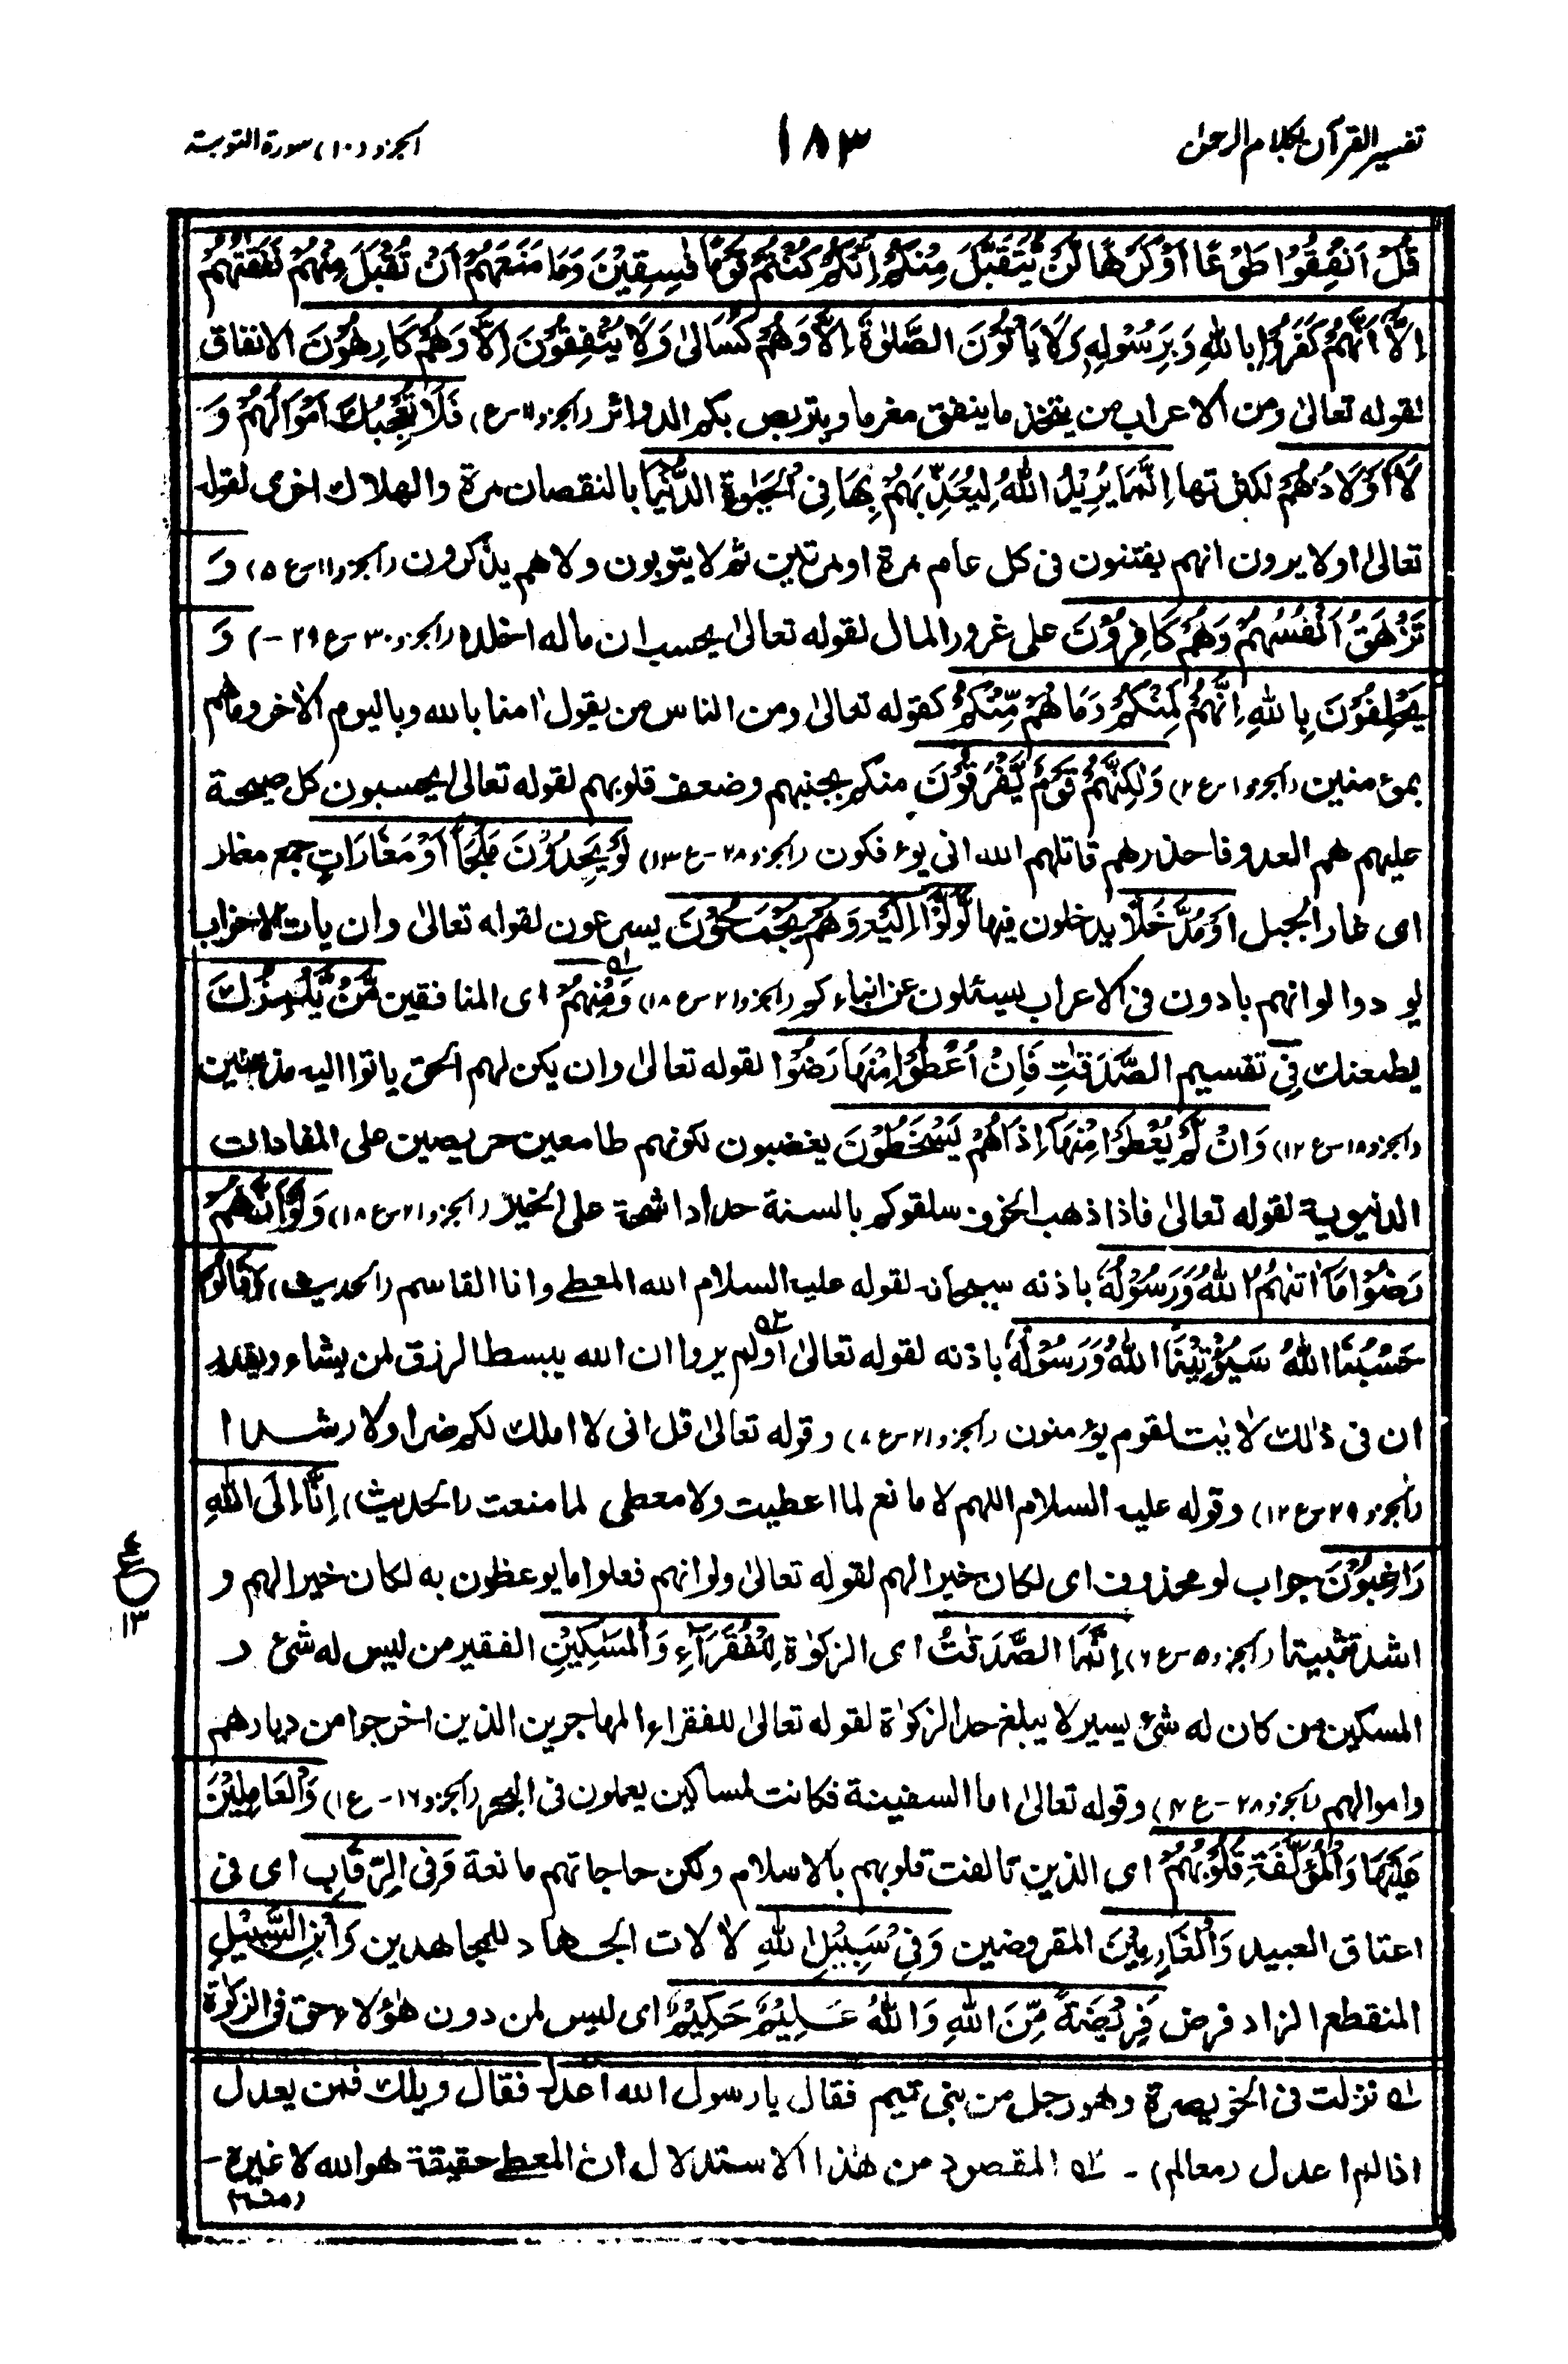 تفسير القرآن بكلام الرحمن
١٨٣
الجزء (١٠) سورة التوبة
قُلْ اَنْفِقُوْا طَوْعًا اَوْ كَرْهًا لَّنْ يُّتَقَبَّلَ مِنْكُمْ اِنَّكُمْ كُنْتُمْ قَوْمًا فٰسِقِيْنَ وَمَا مَنَعَهُمْ اَنْ تُقْبَلَ مِنْهُمْ نَفَقٰتُهُمْ
اِلَّا اَنَّهُمْ كَفَرُوْا بِاللهِ وَبِرَسُوْلِهٖ وَلَا يَاْتُوْنَ الصَّلٰوةَ اِلَّا وَهُمْ كُسَالٰى وَلَا يُنْفِقُوْنَ اِلَّا وَهُمْ كَارِهُوْنَ الانفاق
لقوله تعالى ومن الاعراب من يتخذ ما ينفق مغرما ويتربص بكم الدوائر (الجزء ١١ س ع) فَلَا تُعْجِبْكَ اَمْوَالُهُمْ وَ
لَا اَوْلَادُهُمْ لكثرتها اِنَّمَا يُرِيْدُ اللهُ لِيُعَذِّبَهُمْ بِهَا فِى الْحَيٰوةِ الدُّنْيَا بالنقصان مرة والهلاك اخرى لقوله
تعالى اولا يرون انهم يفتنون فى كل عام مرة او مرتين ثم لا يتوبون ولا هم يذكرون (الجزء ١١ س ع ٥) وَ
تَزْهَقَ اَنْفُسُهُمْ وَهُمْ كَافِرُوْنَ على غرور المال لقوله تعالى يحسب ان ماله اخلده (الجزء ٣٠ س ع ٢٩ -) وَ
يَحْلِفُوْنَ بِاللهِ اِنَّهُمْ لَمِنْكُمْ وَمَا هُمْ مِّنْكُمْ كقوله تعالى ومن الناس من يقول اٰمنا بالله وباليوم الاٰخر وما هم
بمؤمنين (الجزء ١ س ع ٢) وَلٰكِنَّهُمْ قَوْمٌ يَّفْرَقُوْنَ منكم بجبنهم وضعف قلوبهم لقوله تعالى يحسبون كل صيحة
عليهم هم العدو فاحذرهم قاتلهم الله انى يؤفكون (الجزء ٢٨ - ع ١٣) لَوْ يَجِدُوْنَ مَلْجَأً اَوْ مَغٰارَاتٍ جمع مغار
اى غار الجبل اَوْ مُدَّخَلًا يدخلون فيها لَّوَلَّوْا اِلَيْهِ وَهُمْ يَجْمَحُوْنَ يسرعون لقوله تعالى وان يات الاحزاب
يودوا لو انهم بادون فى الاعراب يسئلون عن انباءكم (الجزء ٢١ س ع ١٨) وَمِنْهُمْ اى المنافقين مَّنْ يَّلْمِزُكَ
يطعنك فِى تقسيم الصَّدَقٰتِ فَاِنْ اُعْطُوْا مِنْهَا رَضُوْا لقوله تعالى وان يكن لهم الحق ياتوا اليه مذعنين
(الجزء ١٨ س ع ١٢) وَاِنْ لَّمْ يُعْطَوْا مِنْهَا اِذَا هُمْ يَسْخَطُوْنَ يغضبون لكونهم طامعين حريصين على المفادات
الدنيوية لقوله تعالى فاذا ذهب الخوف سلقوكم بالسنة حداد اشحة على الخير (الجزء ٢١ س ع ١٨) وَلَوْ اَنَّهُمْ
رَضُوْا مَا اٰتٰهُمُ اللهُ وَرَسُوْلُهٗ باذنه سبحانه لقوله عليه السلام الله المعطى وانا القاسم (الحديث) وَقَالُوْا
حَسْبُنَا اللهُ سَيُؤْتِيْنَا اللهُ وَرَسُوْلُهٗ باذنه لقوله تعالى اولم يروا ان الله يبسط الرزق لمن يشاء ويقدر
ان فى ذٰلك لاٰيٰت لقوم يؤمنون (الجزء ٢١ س ع ٨) وقوله تعالى قل انى لا املك لكم ضرا ولا رشدا
(الجزء ٢٩ س ع ١٢) وقوله عليه السلام اللهم لا مانع لما اعطيت ولا معطى لما منعت (الحديث) اِنَّا اِلَى اللهِ
رَاغِبُوْنَ جواب لو محذوف اى لكان خيرا لهم لقوله تعالى ولو انهم فعلوا ما يوعظون به لكان خيرا لهم و
اشد تثبيتا (الجزء ٥ س ع ٦) اِنَّمَا الصَّدَقٰتُ اى الزكوٰة لِلْفُقَرَآءِ وَالْمَسٰكِيْنِ الفقير من ليس له شئ و
المسكين من كان له شئ يسير لا يبلغ حد الزكوٰة لقوله تعالى للفقراء المهاجرين الذين اخرجوا من ديارهم
واموالهم (الجزء ٢٨ - ع ٤) وقوله تعالى اما السفينة فكانت لمساكين يعملون فى البحر (الجزء ١٦ - ع ١) وَالْعَامِلِيْنَ
عَلَيْهَا وَالْمُؤَلَّفَةِ قُلُوْبُهُمْ اى الذين تالفت قلوبهم بالاسلام ولكن حاجاتهم مانعة وَفِى الرِّقَابِ اى فى
اعتاق العبيد وَالْغَارِمِيْنَ المقروضين وَفِىْ سَبِيْلِ اللهِ لاٰلات الجهاد للمجاهدين وَابْنِ السَّبِيْلِ
المنقطع الزاد فرض فَرِيْضَةً مِّنَ اللهِ وَاللهُ عَلِيْمٌ حَكِيْمٌ اى ليس لمن دون هٰؤلاء حق فى الزكوٰة
ع
١٣
١ه نزلت فى الخويصرة وهو رجل من بنى تميم فقال يا رسول الله اعدل فقال ويلك فمن يعدل
اذا لم اعدل (معالم) - ٢ه المقصود من هٰذا الاستدلال ان المعطى حقيقة هو الله لا غيره -